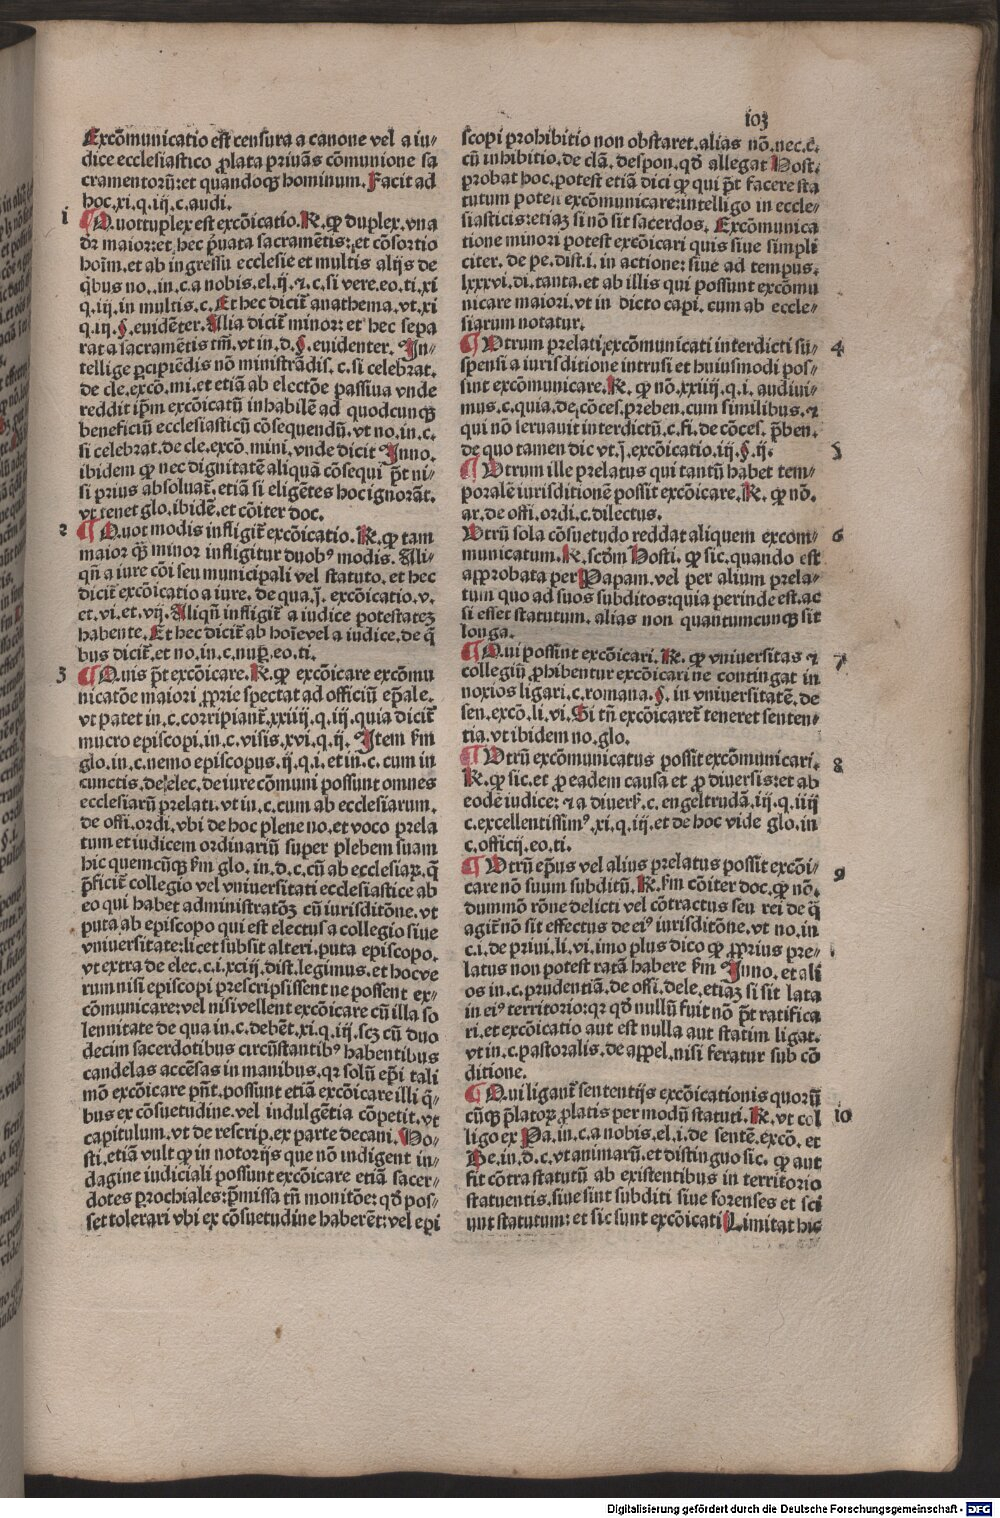 103
Excōmunicatio est censura a canone vel a iu-
dice ecclesiastico ꝓlata priuās cōmunione sa
cramentorū: et quandoqꝫ hominum. Facit ad
hoc. xi. q. iij. c. audi.
1
¶ Quottuplex est excōicatio. R. ꝙ duplex. vna
dr̄ maior: et hec p̄uata sacramētis: et cōsortio
hoīm. et ab ingressu ecclesie et multis alijs de
qībus no. in. c. a nobis. el. ij. ⁊. c. si vere. eo. ti. xi
q. iij. in multis. c. Et hec dicit̄ anathema. vt. xi
q. iij. §. euidēter. Alia dicit̄ minor: et hec sepa
rat a sacramētis tm̄. vt in. d. §. euidenter. In-
tellige ꝑcipiēdis nō ministrādis. c. si celebrat.
de cle. excō. mi. et etiā ab electōe passiua vnde
reddit ip̄m excōicatū inhabilē ad quodcunqꝫ
beneficiū ecclesiasticū cōsequendū. vt no. in. c.
si celebrat. de cle. excō. mini. vnde dicit Inno.
ibidem ꝙ nec dignitatē aliquā cōsequi p̄t ni-
si prius absoluat̄. etiā si eligētes hoc ignorāt.
vt tenet glo. ibidē. et cōiter doc.
2
¶ Quot modis infligit̄ excōicatio. R. ꝙ tam
maior qꝫ minor infligitur duobꝰ modis. Ali-
qn̄ a iure cōi seu municipali vel statuto. et hec
dicit̄ excōicatio a iure. de qua. j. excōicatio. v.
et. vi. et. vij. Aliqn̄ infligit̄ a iudice potestatēꝫ
habente. Et hec dicit̄ ab hoīe vel a iudice. de q̄
bus dicit̄. et no. in. c. nuꝑ. eo. ti.
3
¶ Quis p̄t excōicare. R. ꝙ excōicare excōmu
nicatōe maiori ꝓprie spectat ad officiū ep̄ale.
vt patet in. c. corripiant̄. xxiiij. q. iij. quia dicit̄
mucro episcopi. in. c. visis. xvi. q. ij. Item ẜm
glo. in. c. nemo episcopus. ij. q. i. et in. c. cum in
cunctis. de elec. de iure cōmuni possunt omnes
ecclesiarū prelati. vt in. c. cum ab ecclesiarum.
de offi. ordi. vbi de hoc plene no. et voco prela
tum et iudicem ordinariū super plebem suam
hic quemcūqꝫ ẜm glo. in. d. c. cū ab ecclesiaꝝ. q̄
p̄ficit̄ collegio vel vniuersitati ecclesiastice ab
eo qui habet administratōꝫ cū iurisditōne. vt
puta ab episcopo qui est electus a collegio siue
vniuersitate: licet subsit alteri. puta episcopo.
vt extra de elec. c. i. xciij. dist. legimus. et hoc ve
rum nisi episcopi prescripsissent ne possent ex-
cōmunicare: vel nisi vellent excōicare cū illa so
lennitate de qua in. c. debēt. xi. q. iij. scꝫ cū duo
decim sacerdotibus circūstantibꝰ habentibus
candelas accēsas in manibus. qꝛ solū ep̄i tali
mō excōicare pn̄t. possunt etiā excōicare illi q̄-
bus ex cōsuetudine. vel indulgētia cōpetit. vt
capitulum. vt de rescrip. ex parte decani. Ho-
sti. etiā vult ꝙ in notorijs que nō indigent in-
dagine iudiciali possunt excōicare etiā sacer-
dotes ꝑochiales: p̄missa tn̄ monitōe: qd̄ pos-
set tolerari vbi ex cōsuetudine haberēt: vel epi
scopi prohibitio non obstaret. alias nō. nec. ē.
cū inhibitio. de clā. despon. qd̄ allegat Host.
probat hoc. potest etiā dici ꝙ qui p̄t facere sta
tutum poten excōmunicare: intelligo in eccle-
siasticis: etiaꝫ si nō sit sacerdos. Excōmunica
tione minori potest excōicari quis siue simpli
citer. de pe. dist. i. in actione: siue ad tempus.
lxxxvi. di. tanta. et ab illis qui possunt excōmu
nicare maiori. vt in dicto capi. cum ab eccle-
siarum notatur.
4
¶ Vtrum prelati excōmunicati interdicti su-
spensi a iurisditione intrusi et huiusmodi pos-
sunt excōmunicare. R. ꝙ nō. xxiiij. q. i. audiui-
mus. c. quia. de cōces. preben. cum similibus. ⁊
qui nō seruauit interdictū. c. fi. de cōces. p̄ben.
de quo tamen dic vt. j. excōicatio. iij. §. ij.
5
¶ Vtrum ille prelatus qui tantū habet tem-
poralē iurisditionē possit excōicare. R. ꝙ nō.
ar. de offi. ordi. c. dilectus.
6
Vtrū sola cōsuetudo reddat aliquem excom-
municatum. R. scd̄m Hosti. ꝙ sic. quando est
approbata per Papam. vel per alium prela-
tum quo ad suos subditos: quia perinde est. ac
si esset statutum. alias non quantumcunqꝫ sit
longa.
7
¶ Qui possint excōicari. R. ꝙ vniuersitas ⁊
collegiū ꝓhibentur excōicari ne contingat in
noxios ligari. c. romana. §. in vniuersitatē. de
sen. excō. li. vi. Si tn̄ excōicaret̄ teneret senten-
tia. vt ibidem no. glo.
8
¶ Vtrū excōmunicatus possit excōmunicari.
R. ꝙ sic. et ꝓ eadem causa et ꝓ diuersis: et ab
eodē iudice: ⁊ a diuerẜ. c. engeltrudā. iij. q. iiij
c. excellentissimꝰ. xi. q. iij. et de hoc vide glo. in
c. officij. eo. ti.
9
¶ Vtrū ep̄us vel alius prelatus possit excōi-
care nō suum subditū. R. ẜm cōiter doc. ꝙ nō.
dummō rōne delicti vel cōtractus seu rei de q̄
agit̄ nō sit effectus de eiꝰ iurisditōne. vt no. in
c. i. de priui. li. vi. imo plus dico ꝙ ꝓprius pre-
latus non potest ratā habere ẜm Inno. et ali
os in. c. prudentiā. de offi. dele. etiaꝫ si sit lata
in eiꝰ territorio: qꝛ qd̄ nullū fuit nō p̄t ratifica
ri. et excōicatio aut est nulla aut statim ligat.
vt in. c. pastoralis. de appel. nisi feratur sub cō
ditione.
10
¶ Qui ligant̄ sententijs excōicationis quorū
cūqꝫ p̄latoꝝ ꝓlatis per modū statuti. R. vt col
ligo ex Pa. in. c. a nobis. el. i. de sentē. excō. et
Pe. in. d. c. vt animarū. et distinguo sic. ꝙ aut
fit cōtra statutū ab existentibus in territorio
statuentis. siue sint subditi siue forenses et sci
unt statutum: et sic sunt excōicati Limitat hic
Digitalisierung gefördert durch die Deutsche Forschungsgemeinschaft - DFG